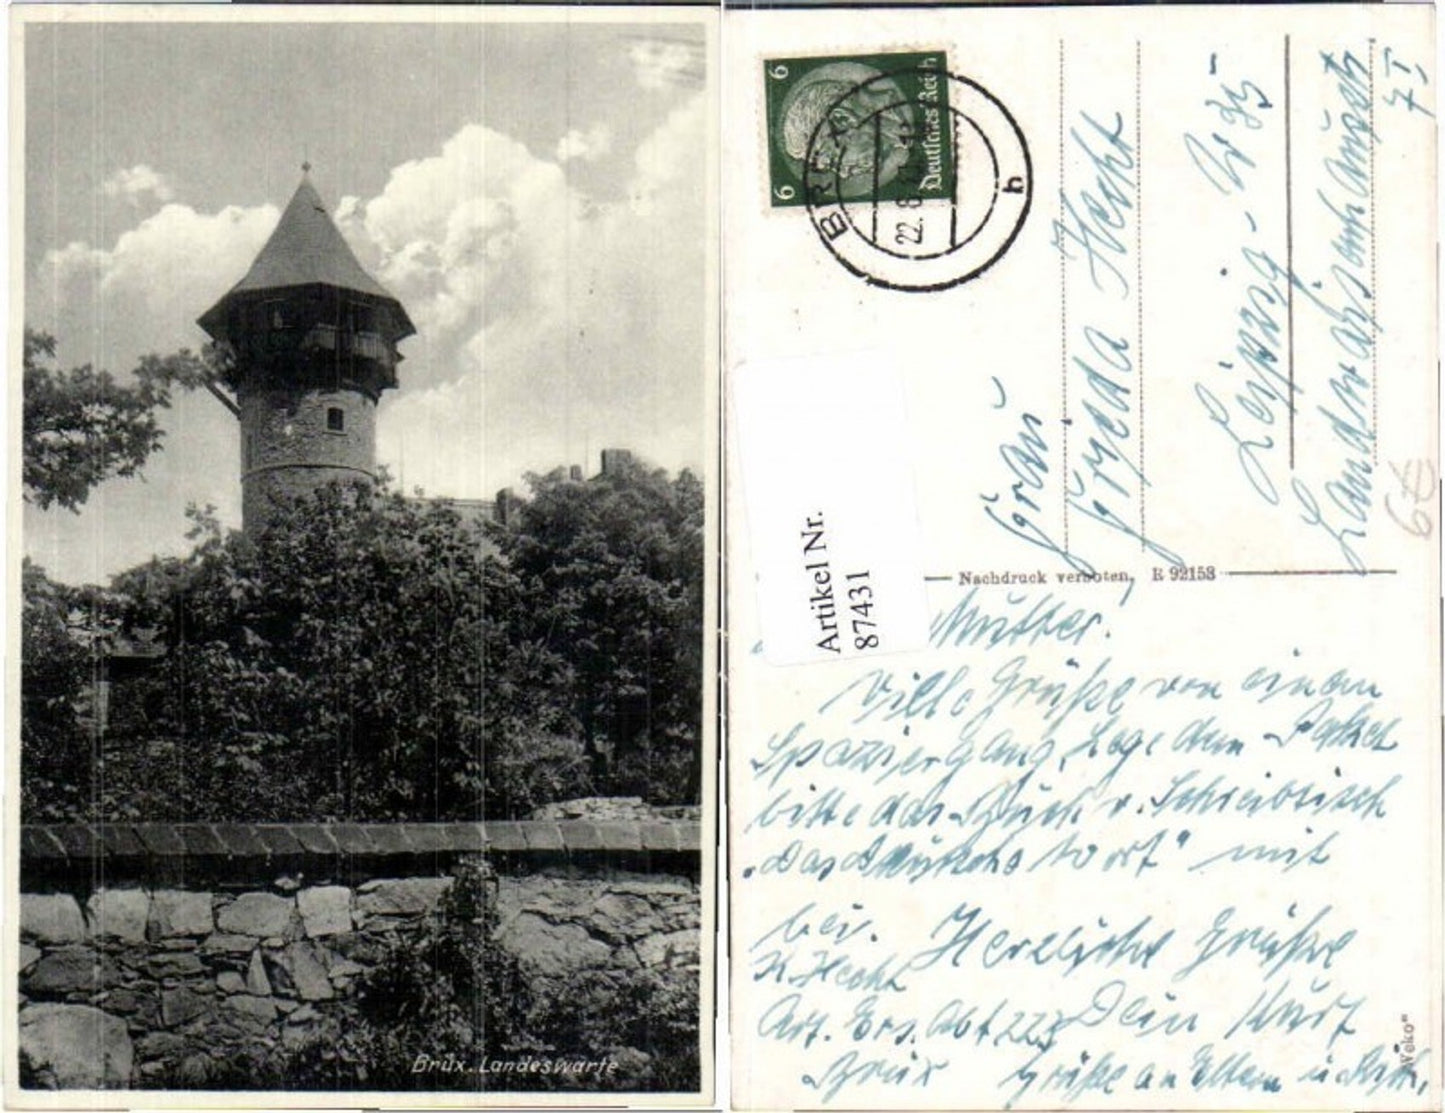 Brüx. Landeswarte
6
6
Deutsches Reich
22. 8.
h
Artikel Nr.
87431
Frau
Hecht
Leipzig - W 35
7 I
6€
Nachdruck verboten. R 92153
Mutter.
Viele Grüße von einem
Spaziergang, Lege dem Paket
bitte das Buch v. Schreibtisch
„Das Deutsche Wort“ mit
bei. Herzliche Grüße
K. Hecht
Art. Ers. Abt 223 Dein Kurt
Brüx Grüße an Eltern u.
Weko“